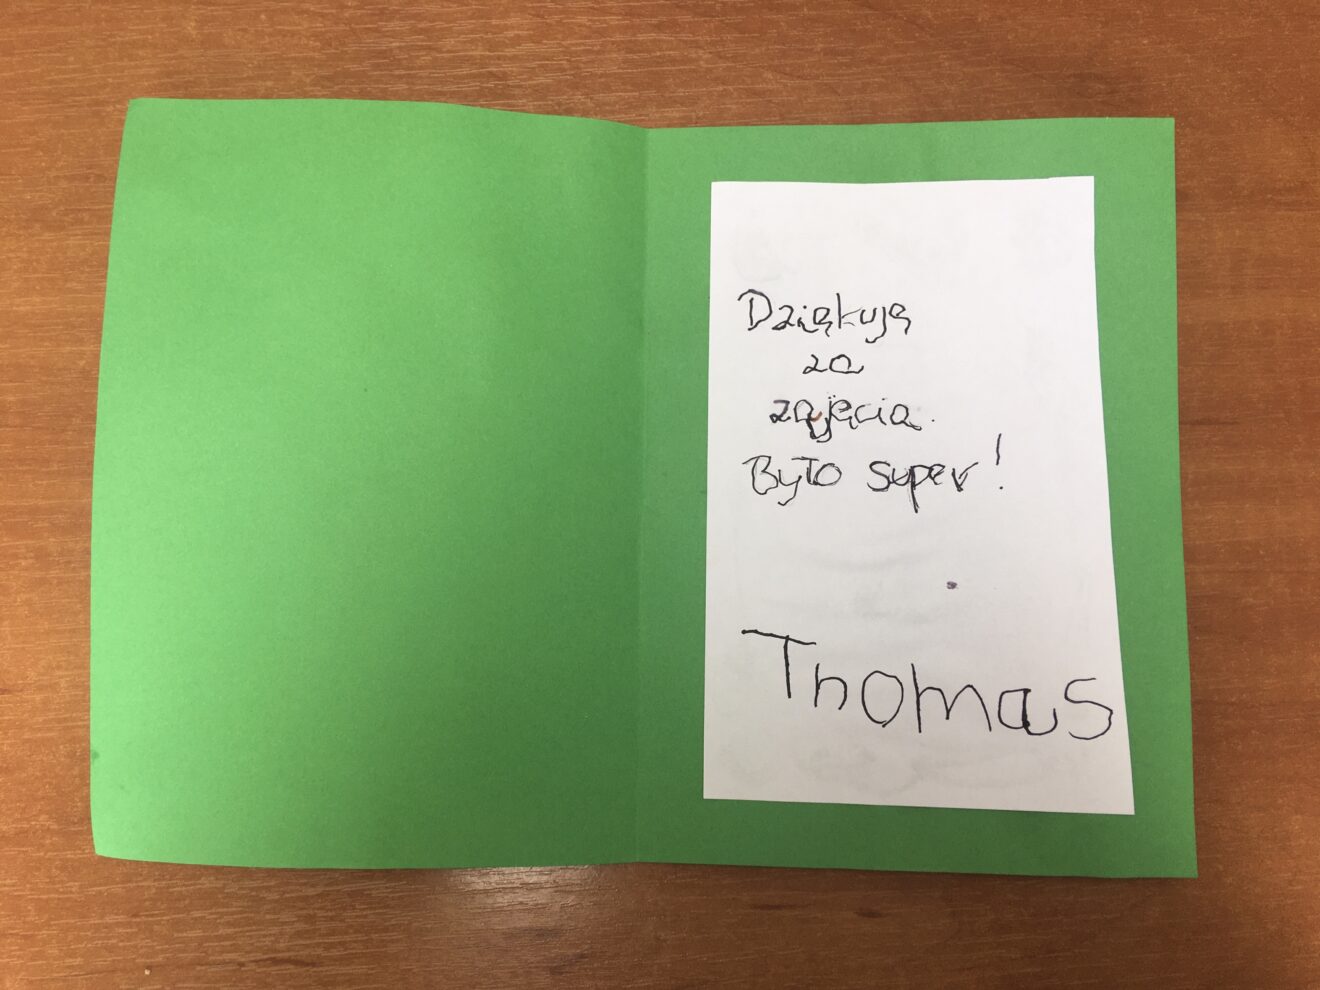 Dziękuję
za
zajęcia.
Było super!
Thomas